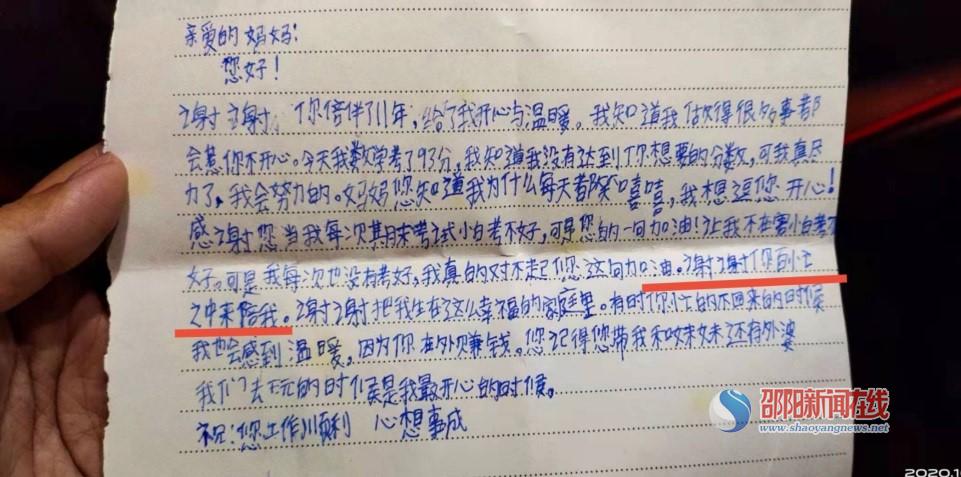 亲爱的妈妈：
您好！
谢谢，你陪伴了11年，给了我开心与温暖。我知道我做得很多事都
会惹你不开心。今天我数学考了93分，我知道我没有达到了你想要的分数，可我真尽
力了，我会努力的。妈妈您知道我为什么每天都嘻嘻，我想逗您开心！
感谢您当我每次期末考试怕考不好，可是您的一句加油！让我不在害怕考不
好。可是我每次也没有考好，我真的对不起您这句加油。谢谢你百忙
之中来陪我。谢谢把我生在这么幸福的家庭里。有时你忙的不回来的时候
我也会感到温暖，因为你在外赚钱。您记得您带我和妹妹还有外婆
我们去玩的时候是我最开心的时候。
祝：您工作顺利 心想事成
邵阳新闻在线
www.shaoyangnews.net